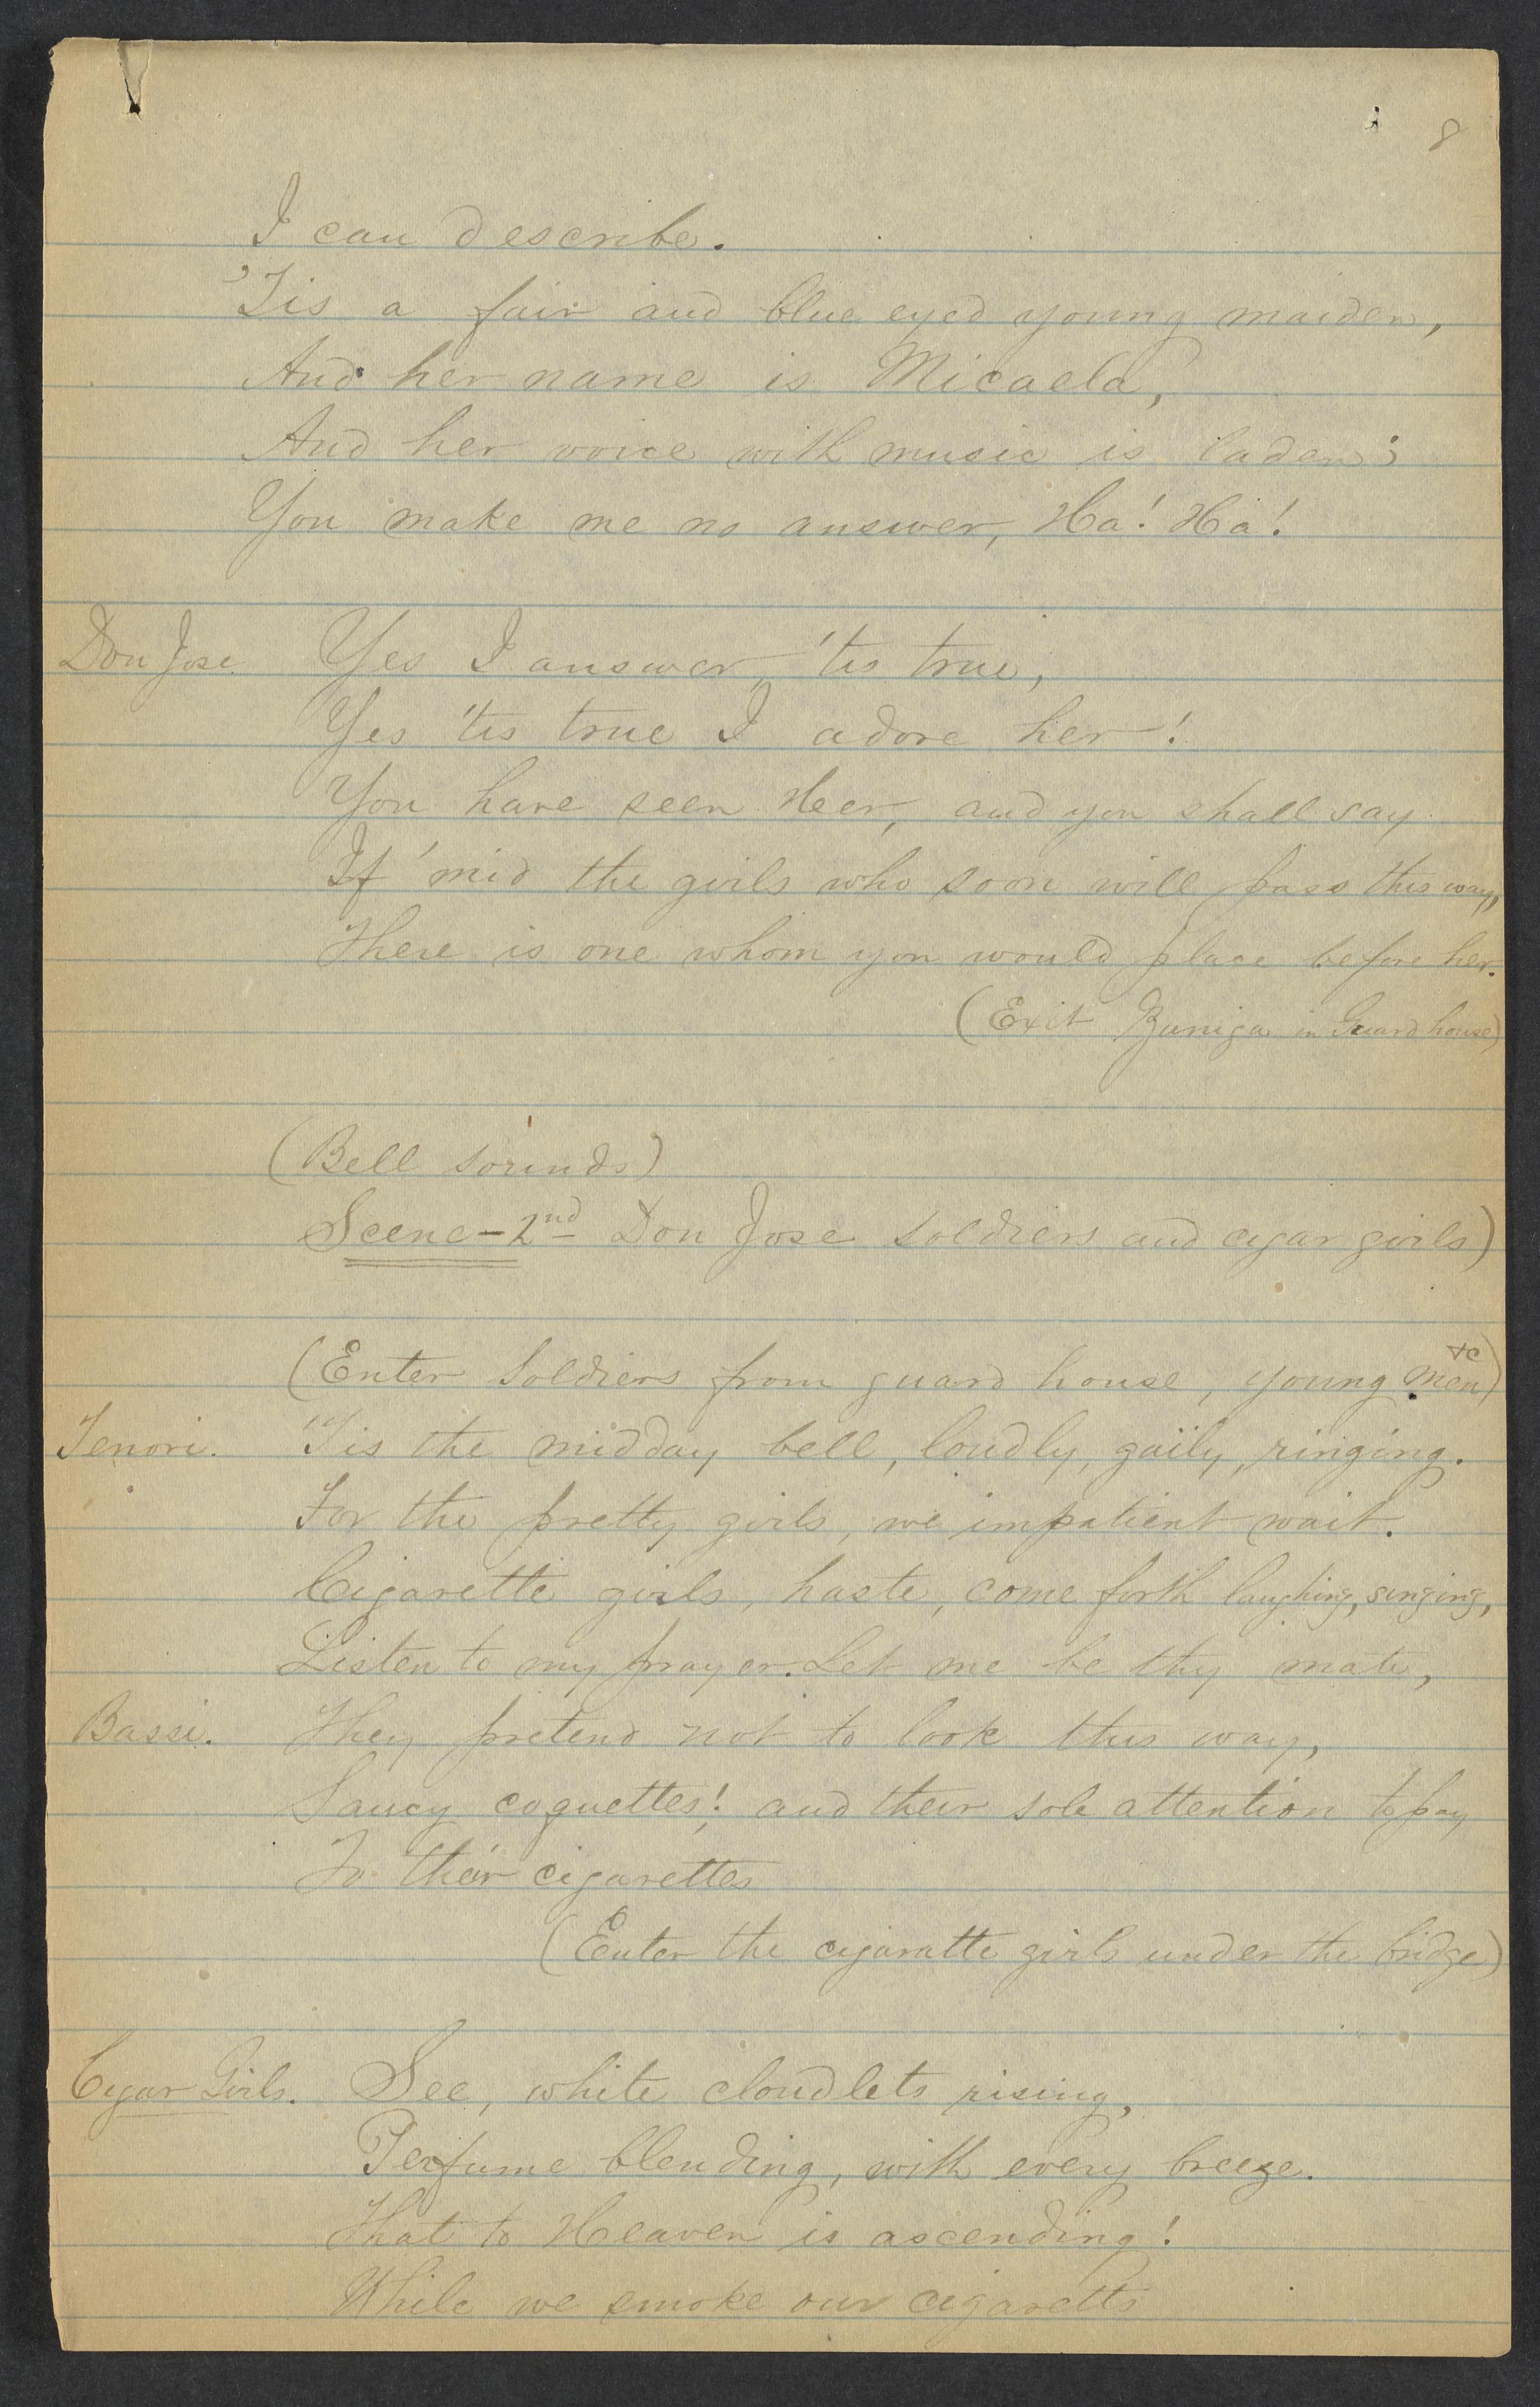 8
I can describe.
'Tis a fair and blue eyed young maiden,
And her name is Micaela,
And her voice with music is laden;
You make me no answer, Ha! Ha!
Don Jose Yes I answer, 'tis true,
Yes 'tis true I adore her!
You have seen Her, and you shall say
If 'mid the girls who soon will pass this way,
There is one whom you would place before her.
(Exit Zuniga in Guard house)
(Bell sounds)
Scene - 2nd Don Jose soldiers and cigar girls)
(Enter soldiers from guard house, young men &c)
Tenori. 'Tis the midday bell, loudly, gaily, ringing.
For the pretty girls, we impatient wait.
Cigarette girls, haste, come forth laughing, singing,
Listen to my prayer. Let me be thy mate,
Bassi. They pretend not to look this way,
Saucy coquettes! and their sole attention to pay
To their cigarettes
(Enter the cigaratte girls under the bridge)
Cigar Girls. See, white cloudlets rising,
Perfume blending, with every breeze.
That to Heaven is ascending!
While we smoke our cigaretts